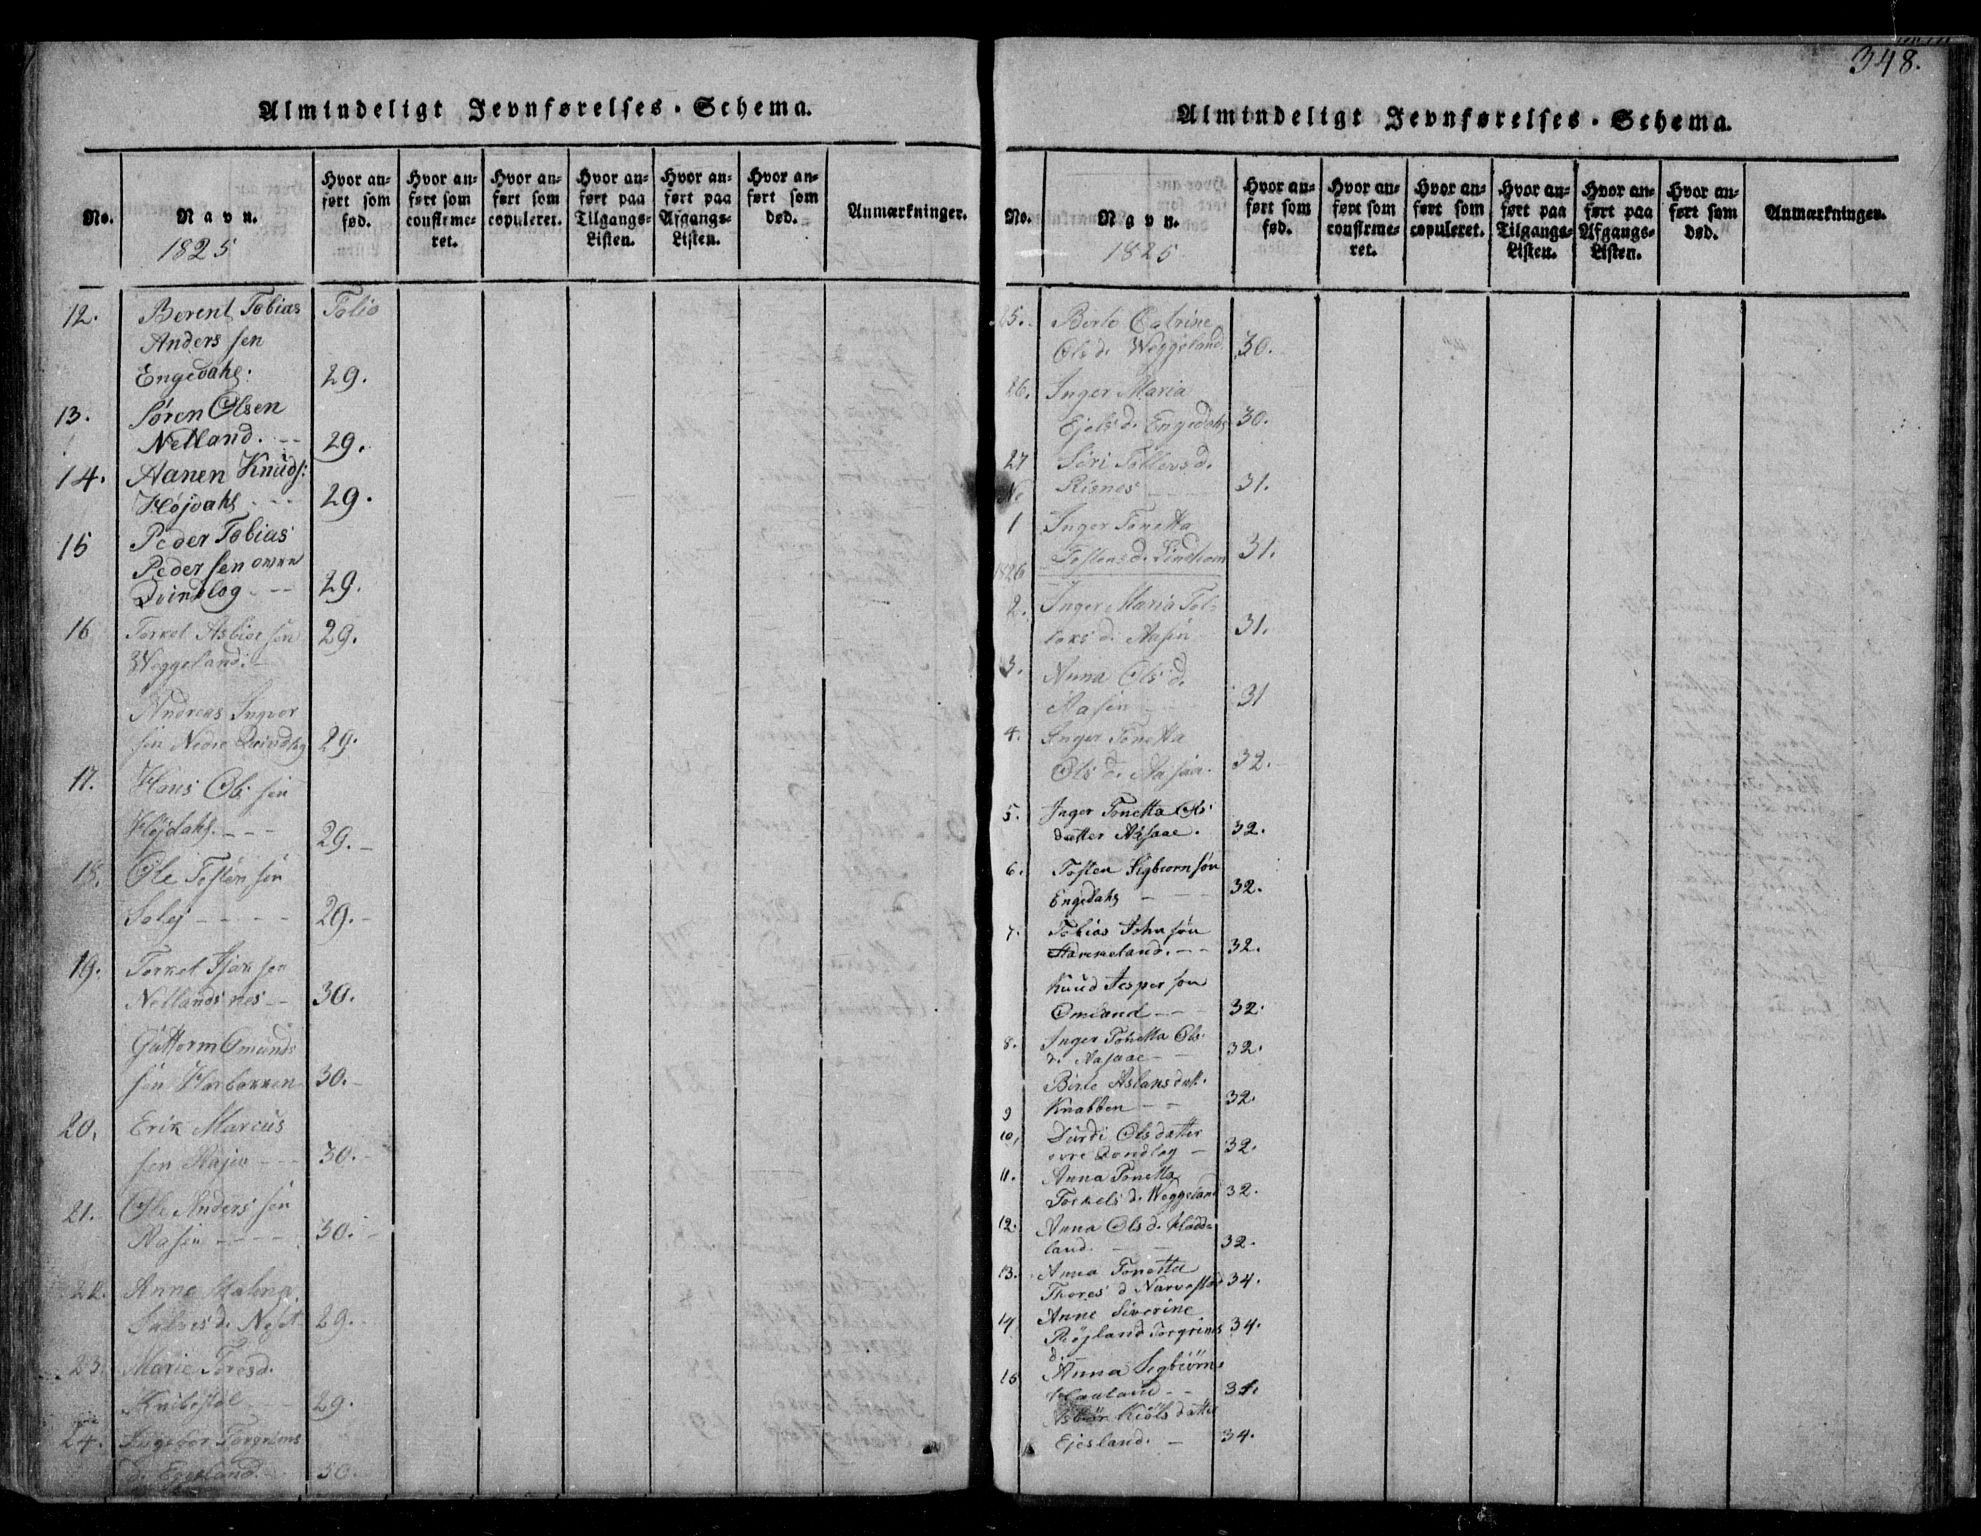 Almindeligt Jevnførelses-Schema.
No.
Navn.
1825
Hvor an-
ført som
fød.
Hvor an-
ført som
confirme-
ret.
Hvor an-
ført som
copuleret.
Hvor an-
ført paa
Tilgangs-
Listen.
Hvor an-
ført paa
Afgangs-
Listen.
Hvor an-
ført som
død.
Anmærkninger.
12. Berent Tobias Folio
Anders sen
Engedahl. 29.
13. Søren Olsen
Netland. -- 29.
14. Aanen Knuds:
Højdahl -- 29.
15 Peder Tobias
Peder sen øvre
Qvindlog -- 29.
16 Torkel Asbiør sen 29.
Weggeland. -
Andreas Ingvor
sen Nedre Qvindlog 29.
17. Hans Ols sen
Højdahl. --- 29. -
18. Ole Tosten sen
Solej ----- 29. -
19. Torkel
Netlands nes -- 30.
Guttorm Omunds
sen 30. -
20. Erik Marcus
sen --- 30. -
21. Ole Anders sen
Aasen ---- 30. -
22. Anne Malena
29.
23. Marie Toresd.
Knibestøl --- 29.
24. Ingebor Torgrims
d. Egeland. 30.
348.
Almindeligt Jevnførelses-Schema.
No.
Navn.
1825
Hvor an-
ført som
fød.
Hvor an-
ført som
confirme-
ret.
Hvor an-
ført som
copuleret.
Hvor an-
ført paa
Tilgangs-
Listen.
Hvor an-
ført paa
Afgangs-
Listen.
Hvor an-
ført som
død.
Anmærkninger.
25. Berte Catrine
Ols d. Weggeland 30.
26. Inger Maria
Ejels d. Engedahl 30.
27 Siri Tollevs d.
No Risnes --- 31.
1 Inger Tonetta
1826 Tostens d. Lindhom 31.
2. Inger Maria Tol-
d. Aasen 31.
3. Anna Ols d.
Aasen 31
4. Inger Tonetta
Ols d. 32.
5. Inger Tonetta Ols
datter Aasaae. 32.
6. Tosten Sigbiorn søn
Engedahl - 32.
7. Tobias John søn
-- 32.
Knud Jesper søn
Omland -- 32.
8. Inger Tonetta Ols
d. Aasaae -- 32.
Birte Aslans datt.
9 Knabben -- 32.
10, Durdi Ols datter
øvre - 32.
11. Anna Tonetta
Torkels d. Weggeland 32.
12. Anna Ols d. Hadde-
land. 32.
13. Anna Tonette
Thores d. Narvestad 34.
14 Anne Siverine
Røjland Torgrims 34.
d.
15 Anna Sigbiørns
Haaland -- 34.
Kiøls datter
Ejesland. - 34.